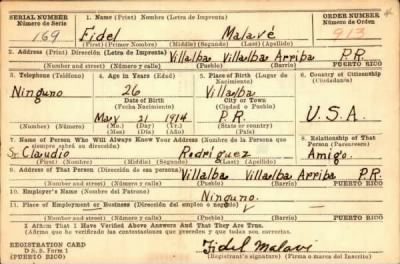 SERIAL NUMBER 1. Name (Print) Nombre (Letra de Imprenta) ORDER NUMBER
Número de Serie Número de Orden
169 Fidel Malavé 913
(First) (Primer Nombre) (Middle) (Segundo) (Last) (Apellido)
2. Address (Print) Dirección (Letra de Imprenta)
Villalba Villalba Arriba P.R.
Number and street) (Número y calle) (Town) (Pueblo) (Barrio) PUERTO RICO
3. Telephone (Teléfono) 4. Age in Years (Edad) 5. Place of Birth (Lugar de Nacimiento) 6. Country of Citizenship (Ciudadanía)
Ninguno 26 Villalba
Date of Birth City or Town
(Fecha Nacimiento) (Ciudad o Pueblo)
May 31 1914 P.R. U.S.A.
(Number) (Número) (Mo.) (Day) (Yr.) State or country)
(Mes) (Día) (Año) País)
7. Name of Person Who Will Always Know Your Address (Nombre de la Persona que siempre sabrá su dirección) 8. Relationship of That Person (Parentesco)
Sr. Claudio Rodríguez Amigo.
(First) (Nombre) (Middle) (Segundo) (Last) (Apellido)
9. Address of That Person (Dirección de esa persona)
Villalba Villalba Arriba P.R.
Number and street) (Número y calle) (Town) (Pueblo) (Barrio) PUERTO RICO
10. Employer's Name (Nombre del Patrono)
Ninguno.
11. Place of Employment or Business (Dirección del empleo o negocio)
(Number and street) (Número y calle) (Town) (Pueblo) (Barrio) PUERTO RICO
I Affirm That I Have Verified Above Answers And That They Are True.
(Afirmo que he verificado las contestaciones que preceden y que todas son correctas.
REGISTRATION CARD
D. S. S. Form 1
(PUERTO RICO) Fidel Malavé
(Registrant's signature) (Firma o marca del Inscrito)